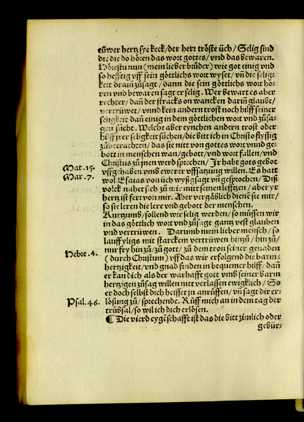 eüwer hertz syȩ keck/der herr tröste üch/Selig sind
de: die do hören das wort gottes/vnd das bewaren.
Hörestu nun (mein lieber brůder) wie got einig vnd
so hefftig vff sein göttlichs wort wyset/vñ die selig
keit daran zů sagt/dann die sein göttlichs wort hö
ren vnd bewaren sagt er selig. Wer bewart es aber
rechter/dañ der stracks on wancken darin glaubt/
vertrüwet/vnnd kein andern trost noch hilff seiner
seligkeit dañ einig in dem göttlichen wort vnd zůsa-
gen sücht. Welche aber eynchen andern trost oder
hilff yrer seligkeit süchen/die bitt ich in Christo flyssig
zů betrachten/das sie nit von gottes wort vnnd ge-
bott in menschen wan/gebott/vnd wort fallen/vnd
Christus zů jnen werd sprechen/Jr habt gots gebot
vffghaben vmb ewerer vffsatzung willen. Es hatt
wol Esaias von üch wyßsagt vñ gesprochen/Diß
volck nahet sich zů mir mit seinen lefftzen/aber yr
hertz ist ferr von mir. Aber vergäblich diene sie mir/
so sie leren die leer vnd gebott der menschen.
Kurtzumb/sollend wir selig werden/so müssen wir
in das göttlich wort vnd zůsag gantz vest glauben
vnd vertrüwen. Darumb mein lieber mensch/so
lauff ylig mit starckem vertrüwen hinzů/hin zů/
nur fry hin zů/zů gott/zů dem tron seiner genaden
Hebre. 4.
(durch Christum) vff das wir erfolgend die barm-
hertzigkeit/vnd gnad finden in bequemer hilff/dañ
er kan dich als der warhafft gott vmb seiner barm
hertzigen zůsag willen nit verlassen ewigklich/So
er doch selbst dich heisset jn anrüffen/vñ sagt dir er-
Psal. 46.
lösung zů/sprechende. Rüff mich an in dem tag der
trübsal/so wil ich dich erlösen.
¶ Die vierd eygeschafft ist das die bitt zimlich oder
gebür-
Mat. 15.
Mar. 7.